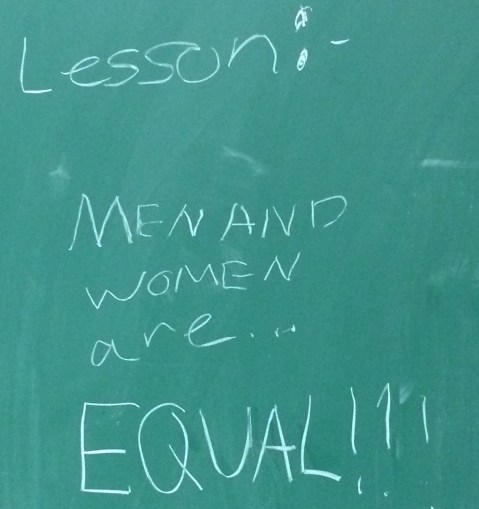 Lesson:-
MEN AND
WOMEN
are...
EQUAL!!!